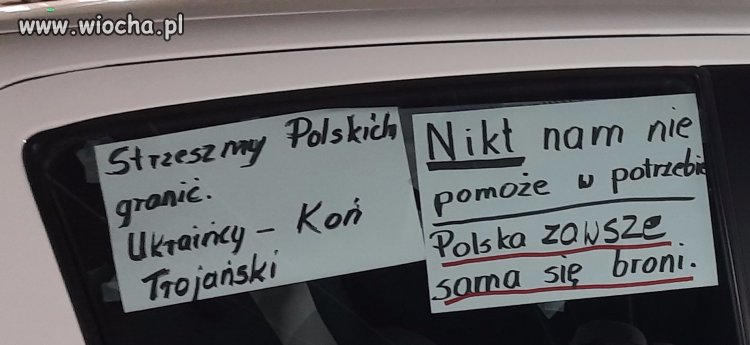 www.wiocha.pl
Strzeszmy Polskich
granić.
Ukraińcy - Koń
Trojański
Nikt nam nie
pomoże w potrzebie
Polska zawsze
sama się broni.